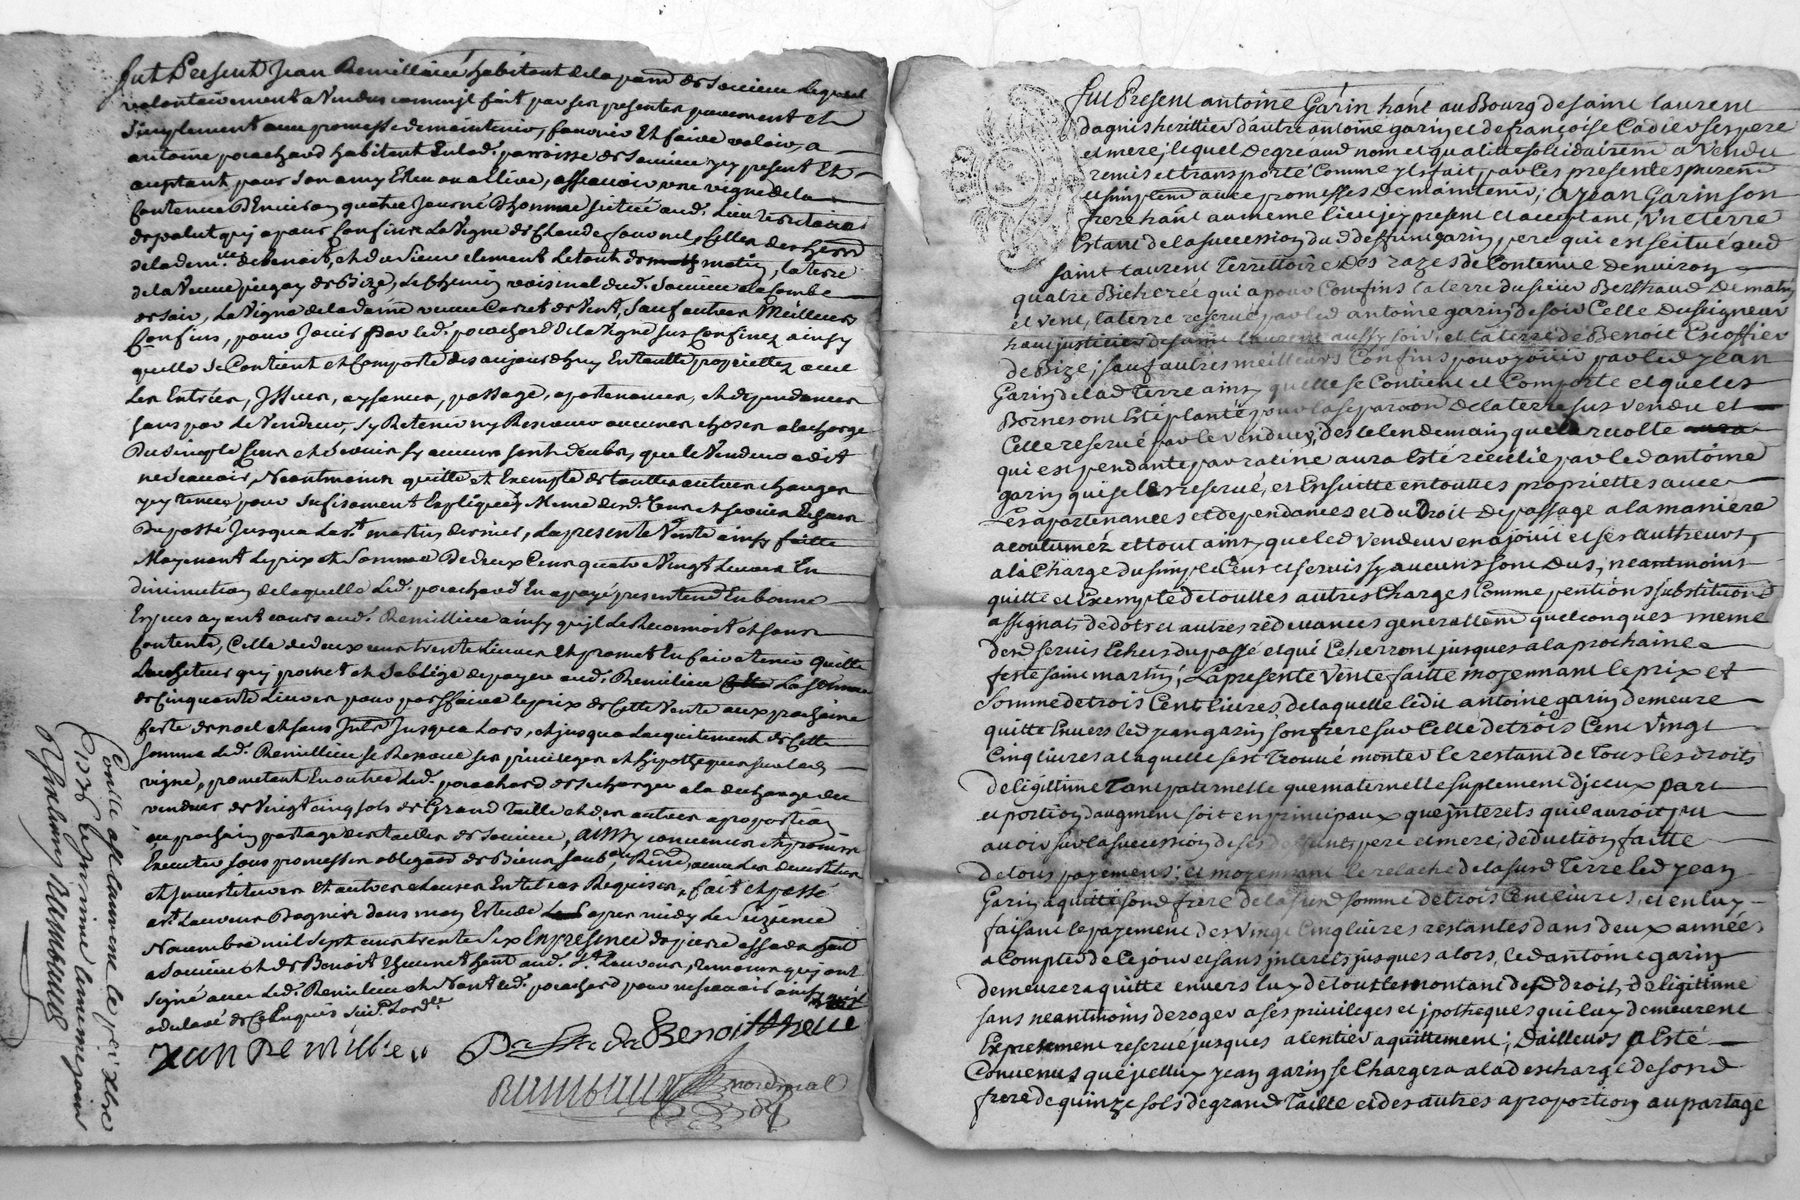 fut Present Jean Remilliere habitant de la parr. de Soucieu lequel
volontairement a Vendu comme il fait par ses presentes purement et
Simplement avec promesse de maintenir, garantir Et faire valoir, a
antoine pourchard habitant En lad. parroisse de Soucieu icy present Et
aceptant pour son amy Esleu ou a Elire, assavoir une vigne de la
Contenue D'Environ quatre Journé D'homme située aud. Lieu Territoire
de palut quy a pour Confins la Vigne de Claude
de la dem.lle de benoit, et du Sieur clement Le tout de matin, la terre
de la Veuve de Bize, le Chemin de Soucieu a
de soir, La Vigne de la dame veuve Carret de Vent, Sauf autres Meilleurs
Confins, pour Jouir par led. pourchard de la Vigne sus Confinez ainsy
quelle se Contient et Comporte des aujourdhuy En toutte proprietté avec
Les Entrées, Issues, aysances, passage, apartenances, et dependances
sans par le Vendeur, Sy Retenir ny Reserver aucunes choses a la charge
Du simple Cens et Servis sy aucuns sont deubs, que le Vendeur a dit
ne scavoir, Neantmoins quitte et Exempte de touttes autres charges
icy tenues pour sufisament Expliquées Meme desd. Cens et servis Echeus
Du passé Jusqua la st. martin dernier, La presente Vente ainsy faitte
Moyenant Le prix et Somme De deux Cens quatre Vingt Livres En
diminution de laquelle Led. pourchard En a payé presentem.t En bonne
Espece ayant cours aud. Remilliere ainsy quil le Reconnoit et sen
Contente, Celle de deux cens trente Livres Et promet En faire tenir quitte
Lacheteur quy promet et s'oblige de payer aud. Remilliere La somme
de Cinquante Livres pour parffaire le prix de Cette Vente aux prochaine
feste de noel et sans Inter. Jusqua Lors, et jusqua Lacquitement de Cette
somme Led. Remilliere se Reserve ses privileges et hipotheques sur lad.
vigne, prometant En outre Led. pourchard de se charger a la decharge du
vendeur de Vingt cinq sols de Grand Taille et des autres a proportion
au prochain partage des tailles de Soucieu, Ainsy convenu et promis
Executer sous promesses obligaõn de Biens avec Les
et Investitures Et autres clauses En tel cas Requises, fait et passé
a st. Laurens Dagnier dans mon Estude apres midy Le Sizieme
Novembre mil Sept cens trente Six En presence de pierre
a Soucieu et de Benoit hant aud. St. Laurens, temoins quy ont
signé avec led. Remilliere et Non led. pourchard pour ne scavoir ainsy
a declaré de Ce Enquis Suiv. Lord.ce
Jean Remillier
Benoit
Conttrollé a st laurent le
1736
fut Present antoine Garin hant au Bourg de saint laurent
dagnis heritier d'autre antoine garin et de françoise Cadier ses pere
et mere, lequel de gre aud nom et qualitte solidairem a vendu
remis et transporté comme il fait, par les presentes purem
et simplem avec promesses de maintenir, a Jean Garin son
frere hant au meme lieu icy present et aceptant, Une terre
Estant de la succession du d deffunt garin, pere qui est seitué aud
saint laurent Territtoire des razes de Contenue denviron
quatre Bicherée qui a pour Confins la terre du sieur Berthaud de matin
et vent, la terre reservé par led antoine garin de soir Celle du seigneur
haut justicier de saint laurent aussy soir, et la terre de Benoit Escoffier
de Bize, sauf autres meilleurs Confins pour jouir par led Jean
Garin de lad Terre ainsy quelle se Contient et Comporte et que les
Bornes ont Esté planté pour la separaon de la terre sus vendu et
Celle reservé par le vendeur, des le lendemain que la recolte
qui est pendante par racine aura Esté recueilie par led antoine
garin qui se les reservé, et Ensuitte en touttes proprietté avec
Les apartenances et dependances et du Droit de passage a la maniere
acoutumez et tout ainsy que led vendeur en a joui et ses autheurs,
a la Charge du simple Cens et servis sy aucuns sont dus, neantmoins
quitte et Exempte de touttes autres Charges Comme pentions substitutions
assignats de dots et autres redevances generallem quelconques meme
desd servis Echus du passé et qui Echerront jusques a la prochaine
feste saint martin, La presente Vente faitte moyennant le prix et
Somme de trois Cent livres de laquelle ledit antoine garin demeure
quitte Envers led jean garin son frere sur Celle de trois Cent Vingt
Cinq livres a laquelle s'est trouvé monter le restant de tous les droits
de légittime tant paternelle que maternelle suplement dyceux part
et portion daugment soit en principaux que interets quil auroit pu
avoir sur la succession de ses deffunts pere et mere, deduction faitte
de tous payemens; et moyennant le relache de la susd Terre led jean
Garin aquitte sond frere de la susd somme de trois Cent livres, et en luy
faisant le payement des vingt Cinq livres restantes dans deux années
a Compter de Ce jour et sans interets jusques alors, led antoine garin
demeurera quitte envers luy de tout le montant desd Droits de ligittime
sans neantmoins deroger a ses privileges et ipotheques qui luy demeurent
Expressement reservé jusques a lentier aquittement; d'ailleurs a Esté
Convenus que jcelluy jean garin se Chargera a la descharge de sond
frere de quinze sols de grand Taille et des autres a proportion au partage